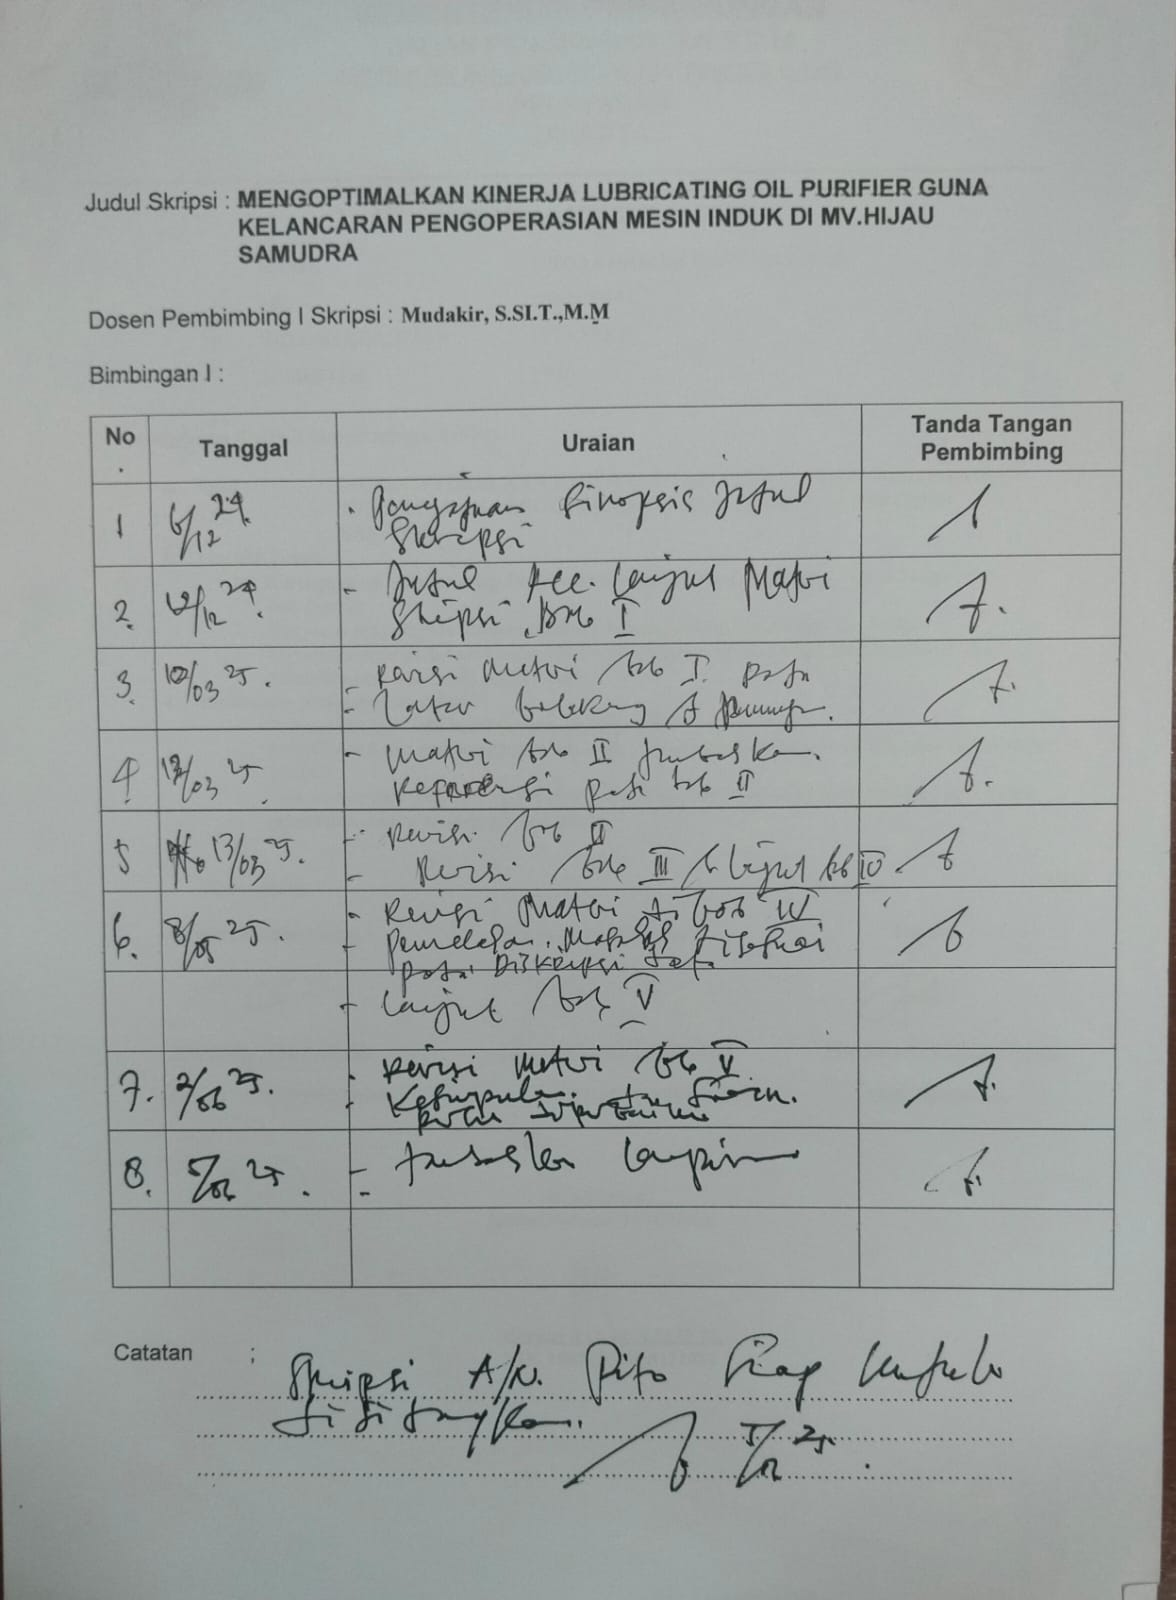 Judul Skripsi : MENGOPTIMALKAN KINERJA LUBRICATING OIL PURIFIER GUNA
KELANCARAN PENGOPERASIAN MESIN INDUK DI MV.HIJAU
SAMUDRA
Dosen Pembimbing I Skripsi : Mudakir, S.SI.T.,M.M
Bimbingan I :
No. Tanggal Uraian Tanda Tangan Pembimbing
1 6/12 24. - Pengajuan Sinopsis Judul
Skripsi
2. /12 24. - Judul Acc. Lanjut Materi
Skripsi Bab I
3. 10/03 25. - Revisi Materi bab I. pada
- Latar belakang
4. 12/03 25. - Materi bab II
Referensi pada bab II
5 13/03 25. - Revisi bab II
- Revisi bab III Lanjut bab IV
6. 8/05 25. - Revisi Materi di bab IV
- Masalah disesuai
Diskripsi
- Lanjut bab V
7. 2/06 25. - Revisi Materi bab V
- Kesimpulan dan Saran.
8. 5/06 25. -
-
Catatan :
Skripsi A/n. Dito Siap untuk
disidangkan.
5/06 25.